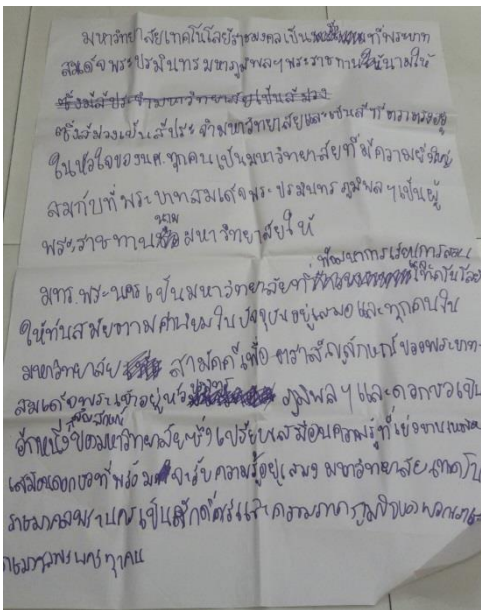 มหาวิทยาลัยเทคโนโลยีราชมงคลเป็น ที่พระบาท
สมเด็จพระปรมินทรมหาภูมิพลฯพระราชทานให้นามให้
ซึ่งมีสีประจำมหาวิทยาลัยเป็นสีม่วง
ซึ่งสีม่วงเป็นสีประจำมหาวิทยาลัยและเป็นสีที่ตราตรึงอยู่
ในหัวใจของนศ.ทุกคนเป็นมหาวิทยาลัยที่มีความยิ่งใหญ่
สมกับที่พระบาทสมเด็จพระปรมินทรภูมิพลฯเป็นผู้
พระราชทานนามมหาวิทยาลัยให้
มทร.พระนครเป็นมหาวิทยาลัยที่พัฒนาการเรียนการสอน
ให้ทันสมัยตามค่านิยมในปัจจุบันอยู่เสมอและทุกคนใน
มหาวิทยาลัย สามัคคีเพื่อ ตราสัญลักษณ์ของพระบาท-
สมเด็จพระเจ้าอยู่หัว ภูมิพลฯและดอกบัวเป็น
อีกหนึ่งสัญลักษณ์ของมหาวิทยาลัยฯซึ่งเปรียบเสมือนความรู้ที่เบ่งบาน
เสมือนดอกบัวที่พร้อม จะรับความรู้อยู่เสมอ มหาวิทยาลัยเทคโน
ราชมงคลพระนครเป็นศักดิ์ศรีและความภาคภูมิใจของพวกเรา
ราชมงคลพระนครทุกคน